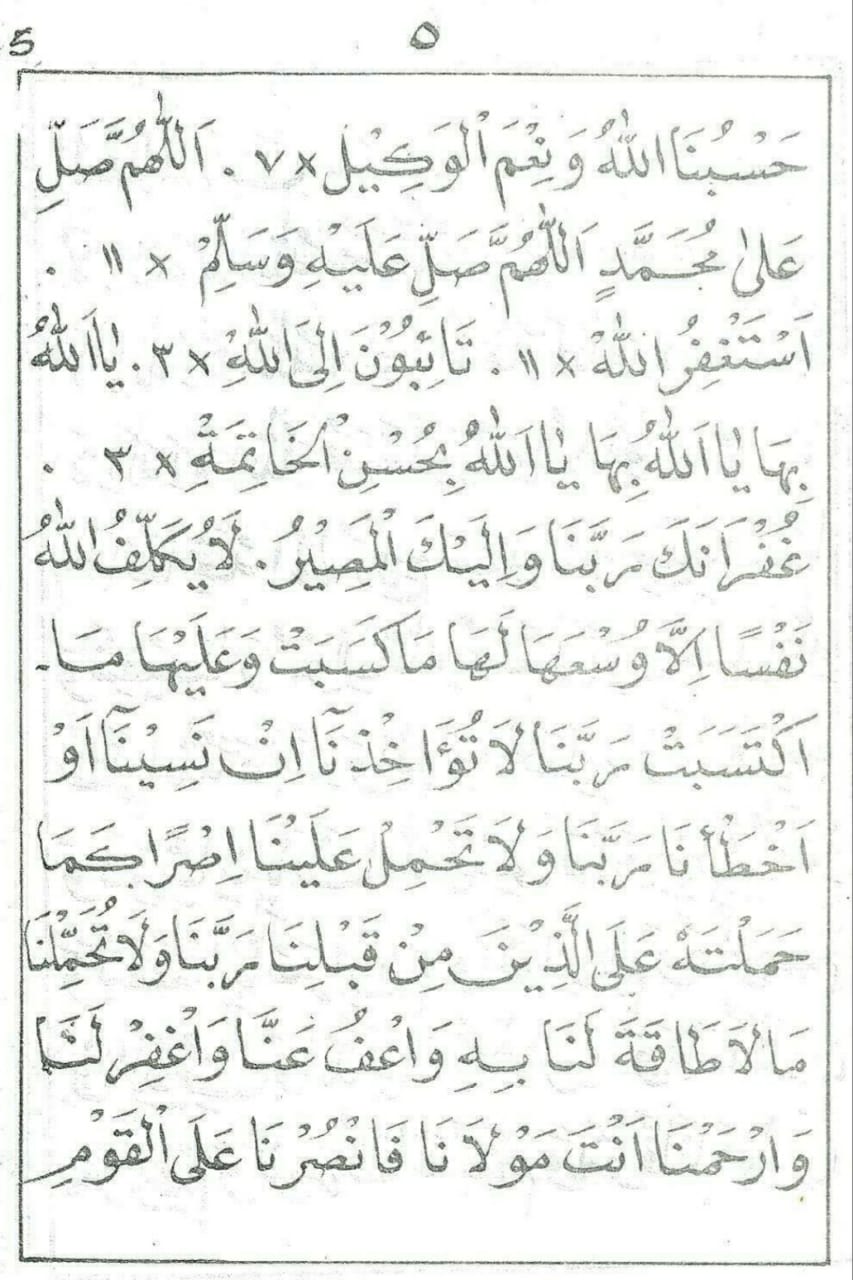 5
٥
حَسْبُنَا اللّٰهُ وَنِعْمَ الْوَكِيْلِ × ٧ . اَللّٰهُمَّ صَلِّ
عَلىٰ مُحَمَّدٍ اَللّٰهُمَّ صَلِّ عَلَيْهِ وَسَلِّمْ × ١١ .
اَسْتَغْفِرُ اللّٰهْ × ١١ . تَائِبُوْنَ اِلَى اللّٰهِ × ٣ . يٰا اَللّٰهُ
بِهَا يٰا اَللّٰهُ بِهَا يٰا اَللّٰهُ بِحُسْنِ الْخَاتِمَةِ × ٣ .
غُفْرَانَكَ رَبَّنَا وَاِلَيْكَ الْمَصِيْرُ . لَا يُكَلِّفُ اللّٰهُ
نَفْسًا اِلَّا وُسْعَهَا لَهَا مَا كَسَبَتْ وَعَلَيْهَا مَا -
اكْتَسَبَتْ رَبَّنَا لَا تُؤَاخِذْنَآ اِنْ نَسِيْنَآ اَوْ
اَخْطَأْنَا رَبَّنَا وَلَا تَحْمِلْ عَلَيْنَا اِصْرًا كَمَا
حَمَلْتَهُ عَلَى الَّذِيْنَ مِنْ قَبْلِنَا رَبَّنَا وَلَا تُحَمِّلْنَا
مَا لَا طَاقَةَ لَنَا بِهِ وَاعْفُ عَنَّا وَاغْفِرْ لَنَا
وَارْحَمْنَا اَنْتَ مَوْلَانَا فَانْصُرْنَا عَلَى الْقَوْمِ